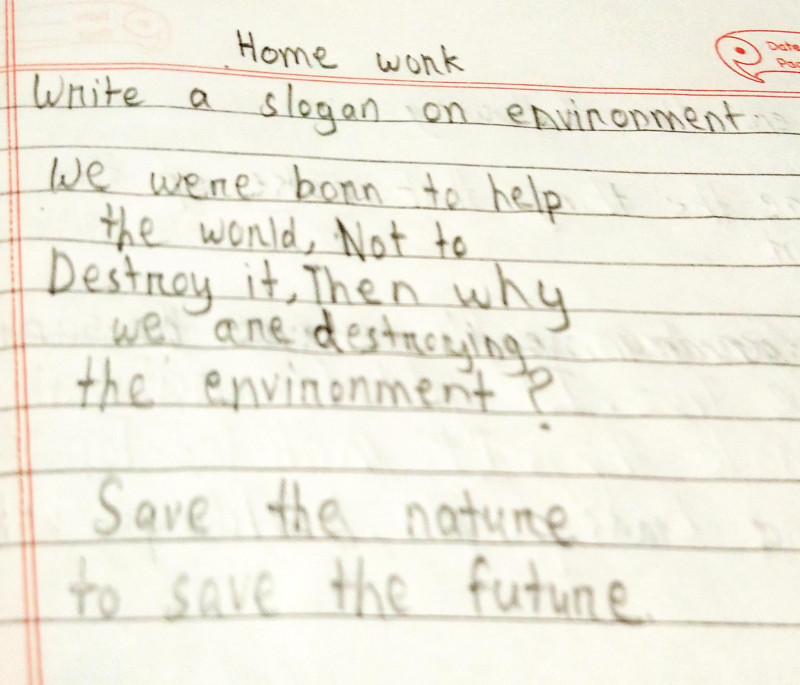 Home work
Date
Write a slogan on environment
We were born to help
the world, Not to
Destroy it, Then why
we are destroying
the environment ?
Save the nature
to save the future